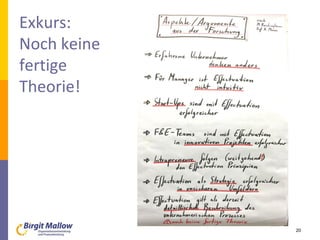 Exkurs:
Noch keine
fertige
Theorie!
Aspekte/Argumente
aus der Forschung
nach
⇒ Erfahrene Unternehmer
denken anders.
⇒ Für Manager ist Effectuation
nicht intuitiv
⇒ Start-Ups sind mit Effectuation
erfolgreicher
⇒ F&E-Teams sind mit Effectuation
in innovativen Projekten erfolgreicher
⇒ Intrapreneure folgen (weitgehend!)
den Effectuation Prinzipien
⇒ Effectuation als Strategie erfolgreicher
in unsicheren Umfeldern
⇒ Effectuation gilt als derzeit
detaillierteste Beschreibung des
unternehmerischen Prozesses
(Noch keine fertige Theorie)
Birgit Mallow
20